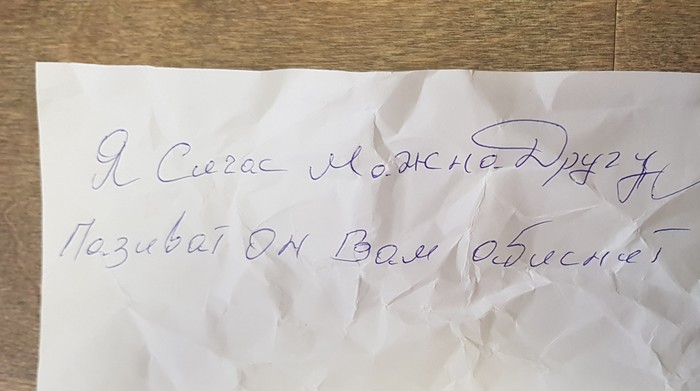 Я Сичас Можна Другу
Пазиват Он Вам обиснит